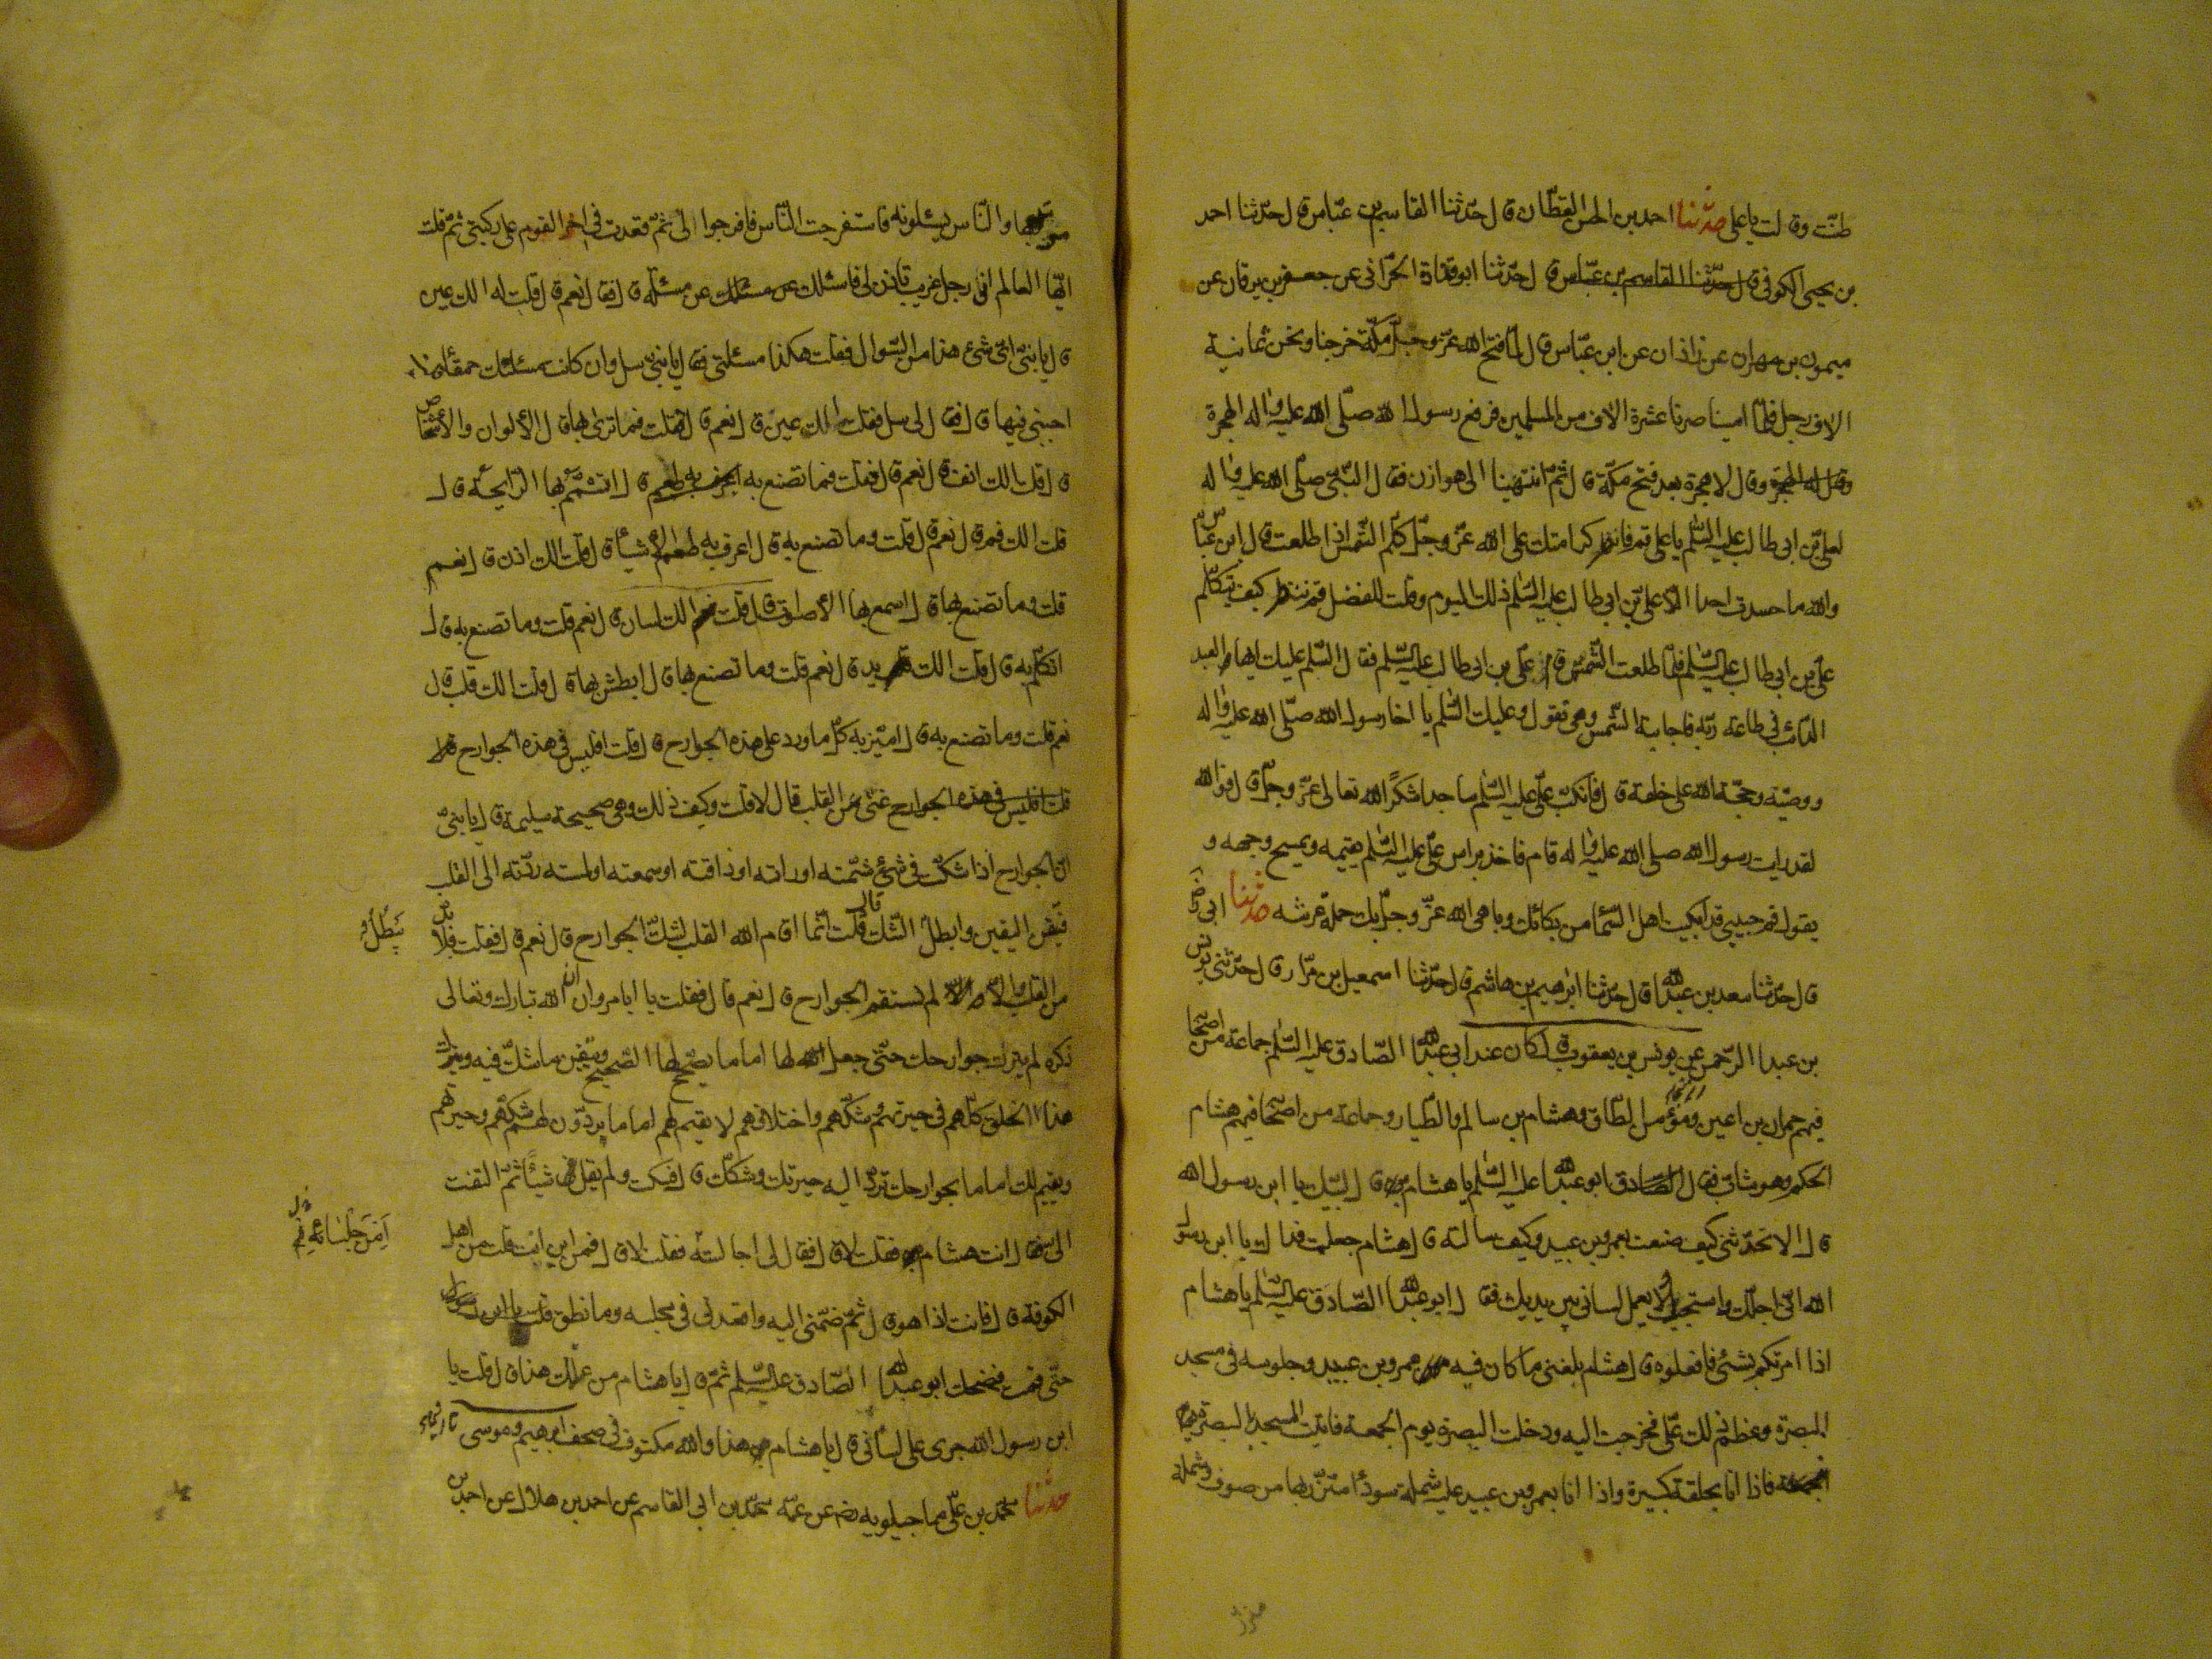 طنّت وقالت يا على حدّثنا احمد بن الحسن القطّان قال حدّثنا القاسم بن عبّاس قال حدّثنا احمد
بن يحيى الكوفى قال حدّثنا القاسم بن عبّاس قال حدّثنا ابو قتادة الحرّانى عن جعفر بن برقان عن
ميمون بن مهران عن زاذان عن ابن عبّاس قال لمّا فتح الله عزّ وجلّ مكّة خرجنا ونحن ثمانية
الاف رجل فلمّا امسينا صرنا عشرة الاف من المسلمين فرفع رسول الله صلّى الله عليه واله الهجرة
الهجرة وقال لا هجرة بعد فتح مكّة قال ثمّ انتهينا الى هوازن فقال النّبىّ صلّى الله عليه واله
لعلىّ بن ابى طالب عليه السّلم يا على قم فانظر كرامتك على الله عزّ وجلّ كلّم الشّمس اذا طلعت قال ابن عبّاس
والله ما حسدت احدا الّا علىّ بن ابى طالب عليه السّلم ذلك اليوم وقلت للفضل قم ننظر كيف يتكلّم
علىّ بن ابى طالب عليه السّلم فلمّا طلعت الشّمس قام علىّ بن ابى طالب عليه السّلم فقال السّلم عليك ايها العبد
الدّائب فى طاعة ربّه فاجابته الشّمس وهى تقول وعليك السّلم يا اخا رسول الله صلّى الله عليه واله
ووصيّه وحجّة الله على خلقه قال فانكبّ علىّ عليه السّلم ساجدا شكرًا لله تعالى عزّ وجلّ قال فوالله
لقد رايت رسول الله صلى الله عليه واله قام فاخذ براس علىّ عليه السّلم يقيمه ويمسح وجهه و
يقول قم حبيبى قد ابكيت اهل السّما من بكائك وباهى الله عزّ وجلّ بك حملة عرشه حدّثنا ابى رض
قال حدّثنا سعد بن عبد الله قال حدّثنا ابرهيم بن هاشم قال حدّثنا اسمعيل بن مرّار قال حدّثنى يونس
بن عبد الرّحمن عن يونس بن يعقوب قال كان عند ابى عبد الله الصّادق عليه السّلم جماعة من اصحابه
فيهم حمران بن اعين ومؤمن الطّاق وهشام بن سالم والطّيار وجماعة من اصحابه فيهم هشام
الحكم وهو شاب فقال الصّادق ابو عبد الله عليه السّلم يا هشام قال لبّيك يا ابن رسول الله
قال الا تحدّثنى كيف صنعت بعمرو بن عبيد وكيف سالته قال هشام جعلت فداك يا ابن رسول
الله انّى اجلّك واستحييك ولا يعمل لسانى بين يديك فقال ابو عبد الله الصّادق عليه السّلم يا هشام
اذا امرتكم بشئ فافعلوه قال هشام بلغنى ما كان فيه عمرو بن عبيد وجلوسه فى مسجد
البصرة وعظم ذلك علىّ فخرجت اليه ودخلت البصرة يوم الجمعة فاتيت المسجد البصرة
فاذا انا بحلقة كبيرة واذا انا بعمرو بن عبيد عليه شملة سودا متّزر بها من صوف وشملة
مرتد بها والنّاس يسئلونه فاستفرجت النّاس فافرجوا لى ثمّ قعدت فى اخر القوم على ركبتى ثمّ قلت
ايّها العالم انى رجل غريب تاذن لى فاسئلك عن مسئلة قال فقال نعم قال قلت له الك عين
قال يا بنىّ اىّ شئ هذا من السّؤال فقلت هكذا مسئلتى فقال يا بنىّ سل وان كانت مسئلتك حمقا قلت
اجبنى فيها قال فقال لى سل فقلت الك عين قال نعم قال قلت فما ترى بها قال الالوان والاشخاص
قال قلت الك انف قال نعم قال فقلت فما تصنع به قال اتشمّم بها الرّايحة قال
قلت الك فم قال نعم قال قلت وما تصنع به قال اعرف به طعم الاشياء قال قلت الك اذن قال نعم
قلت وما تصنع بها قال اسمع بها الاصوات قال قلت الك لسان قال نعم قلت وما تصنع به قال
اتكلّم به قال قلت الك يد قال نعم قلت وما تصنع بها قال ابطش بها قال قلت الك قلب قال
نعم قلت وما تصنع به قال اميّز به كلّ ما ورد على هذه الجوارح قال قلت افليس فى هذه الجوارح
قلت افليس فى هذه الجوارح غنى عن القلب قال لا قلت وكيف ذلك وهى صحيحة سليمة قال يا بنىّ
انّ الجوارح اذا شكّت فى شئ شمّته او راته او ذاقته او سمعته او لمسته ردّته الى القلب
فتيقّن اليقين وابطل الشّك قال قلت انّما اقام الله القلب لشكّ الجوارح قال نعم قال فقلت فلا بدّ
يبطل و
من القلب والّا لم تستقم الجوارح قال نعم قال فقلت يا ابا مروان انّ الله تبارك وتعالى
ذكره لم يترك جوارحك حتّى جعل لها اماما يصحّح لها الصّحيح وتيقّن ما شكّ فيه ويترك
هذا الخلق كلّهم فى حيرتهم وشكّهم واختلافهم لا يقيم لهم اماما يردّون لهم شكّهم وحيرتهم
ويقيم لك اماما لجوارحك تردّ اليه حيرتك وشكّك قال فسكت ولم يقل شيئًا ثمّ التفت
الىّ فقال انت هشام فقلت لا قال فقال لى اجالسته فقلت لا قال فمن اين انت قلت من اهل
امن جلسائه
الكوفة قال فانت اذا هو قال ثمّ ضمّنى اليه واقعدنى فى مجلسه وما نطق
حتّى قمت فضحك ابو عبد الله الصّادق عليه السّلم ثمّ قال يا هشام من علّمك هذا قال قلت يا
ابن رسول الله جرى على لسانى قال يا هشام هذا والله مكتوف فى صحف ابرهيم وموسى
حدّثنا محمّد بن علىّ ماجيلويه رضه عن عمّه محمّد بن ابى القاسم عن احمد بن هلال عن احمد بن